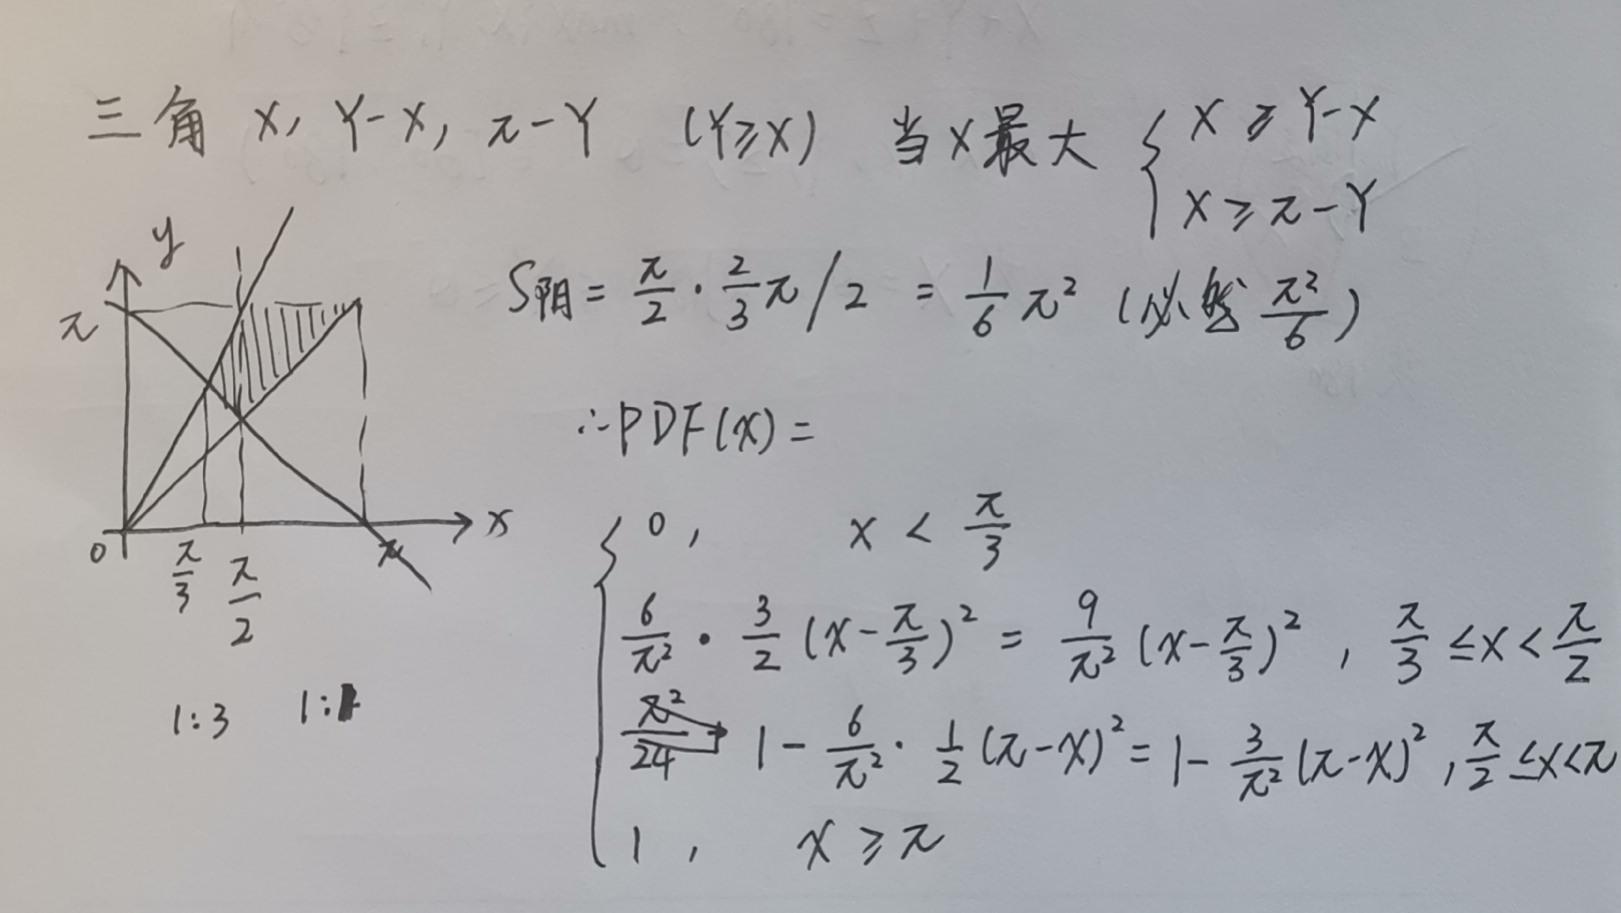 三角 X, Y-X, π-Y (Y≥X) 当X最大 { X ≥ Y-X
X ≥ π-Y
y
π
0
π/3
π/2
π
x
1:3 1:1
S阴 = π/2 · 2/3 π / 2 = 1/6 π² (必然 π²/6)
∴PDF(x) =
{ 0, x < π/3
6/π² · 3/2 (x-π/3)² = 9/π² (x-π/3)², π/3 ≤x< π/2
π²/24 1 - 6/π² · 1/2 (π-x)² = 1- 3/π² (π-x)², π/2 ≤x<π
1, x ≥ π